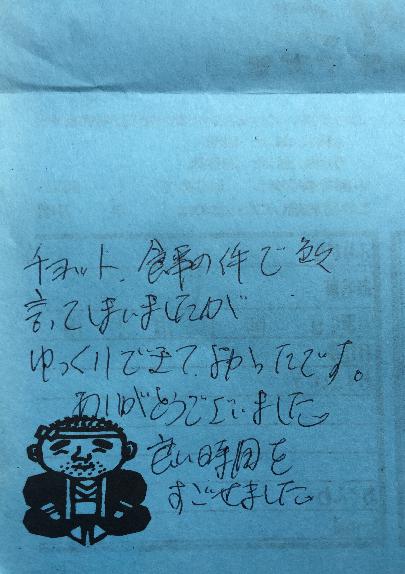 チョット、食事の件で色々
言ってしまいましたが
ゆっくりできてよかったです。
ありがとうございました。
良い時間を
すごせました。